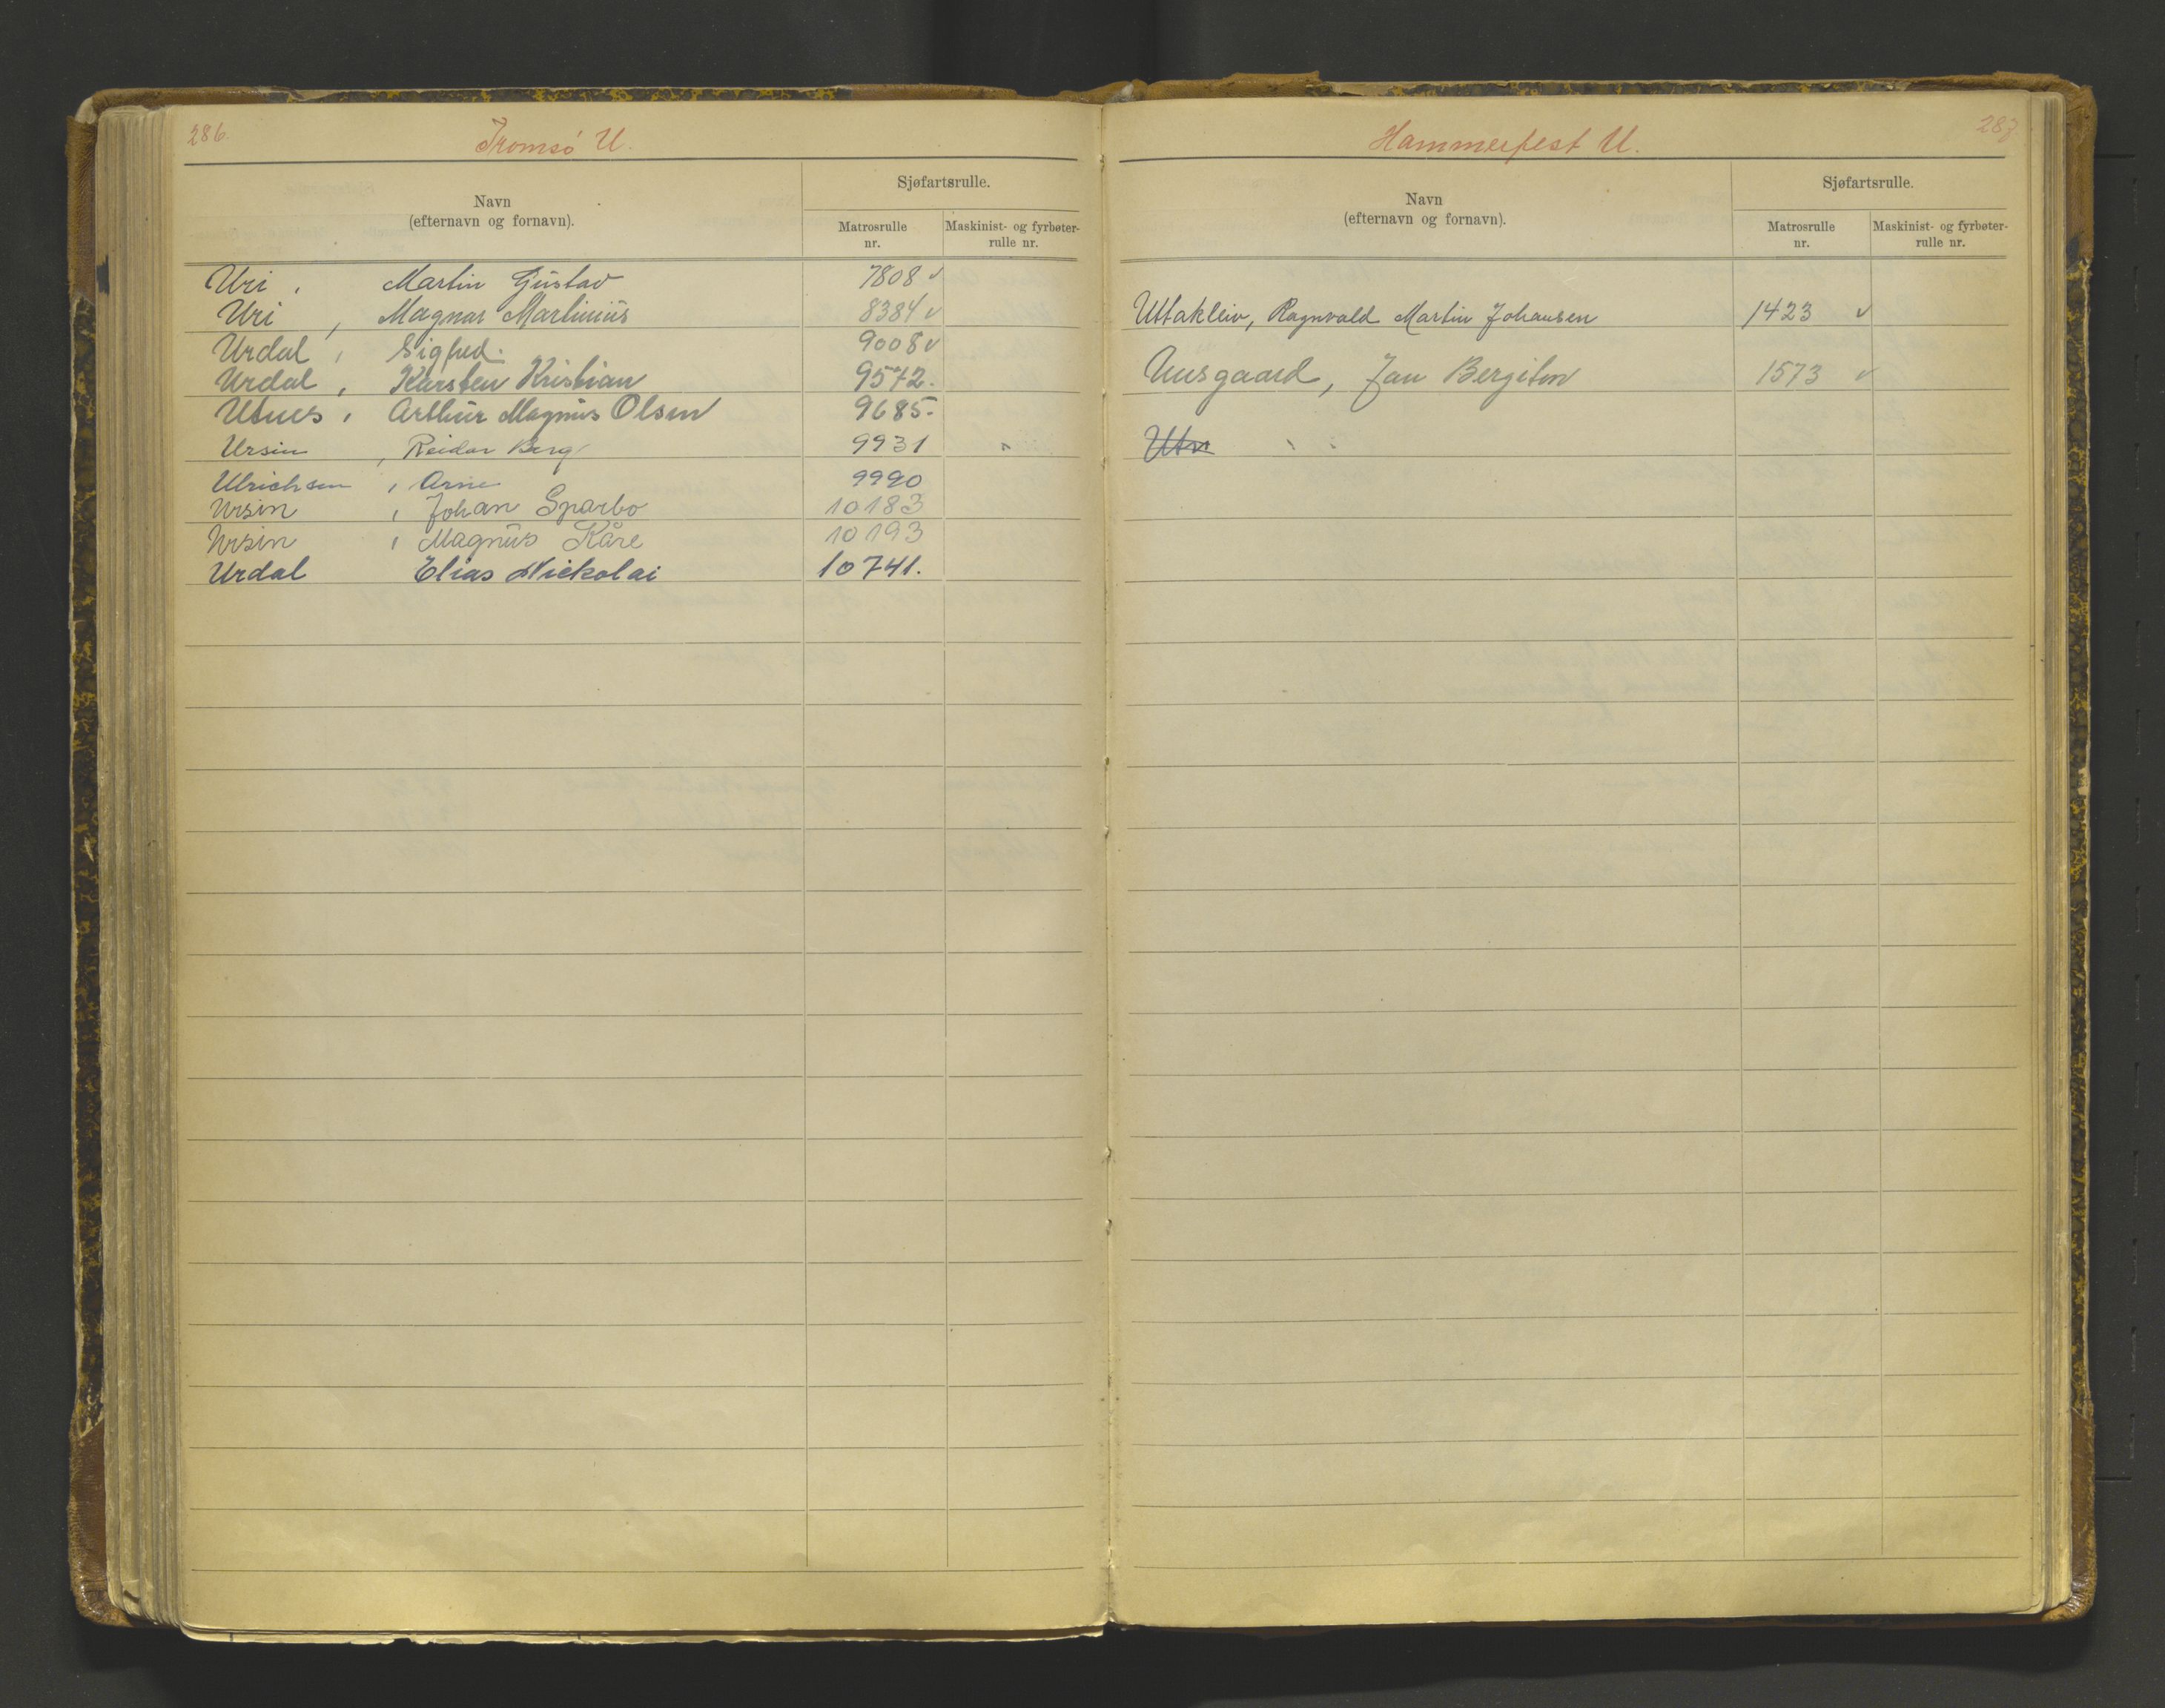 286.
Tromsø U.
Navn
(efternavn og fornavn).
Sjøfartsrulle.
Matrosrulle
nr.
Maskinist- og fyrbøter-
rulle nr.
Uri, Martin Gustav 7808 ✓
Uri, Magnar Martinius 8384 ✓
Urdal, Sigfred. 9008 ✓
Urdal, Karsten Kristian 9572.
Utnes, Arthur Magnus Olsen 9685.
Ursin, Reidar Berg 9931
Ulrichsen, Arne 9990
Ursin, Johan Sparbo 10183
Ursin, Magnus Kåre 10193
Urdal Elias Nickolai 10741.
287.
Hammerfest U.
Navn
(efternavn og fornavn).
Sjøfartsrulle.
Matrosrulle
nr.
Maskinist- og fyrbøter-
rulle nr.
Uttakleiv, Ragnvald Martin Johansen 1423 ✓
Uusgaard, Jan Bergiton 1573 ✓